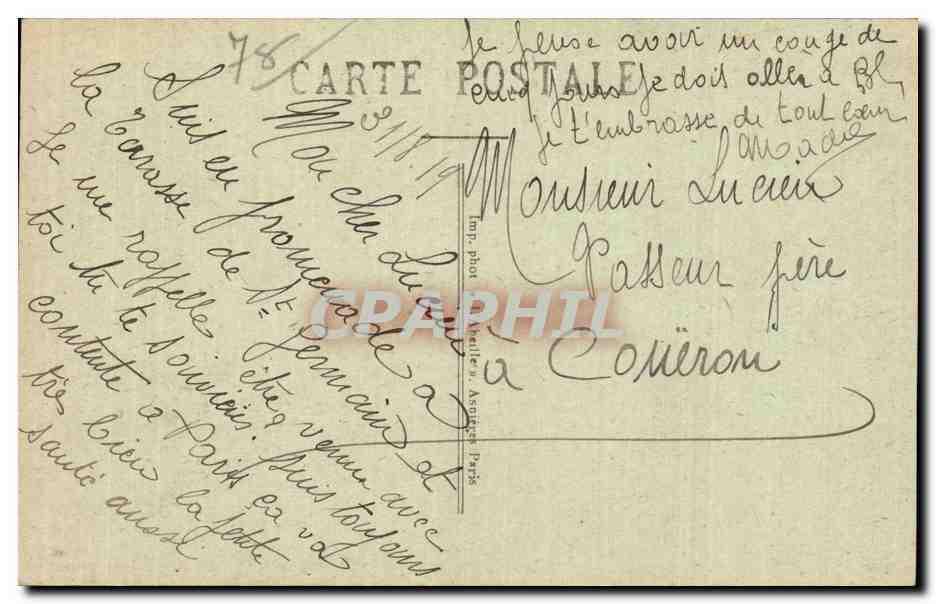 78
CARTE POSTALE
31/8/19
Mon cher Lucien
Suis en promenade à
la Terrasse de St Germain et
Je me rappelle être venu avec
toi tu te souviens. Suis toujours
contente à Paris ça va
très bien la petite
santé aussi.
Je pense avoir un congé de
cinq jours Je doit aller à Bl
je t'embrasse de tout cœur
Monsieur Lucien
Passeur père
à Couëron
Imp. phot "Abeille". Asnières Paris
CPARPHIL